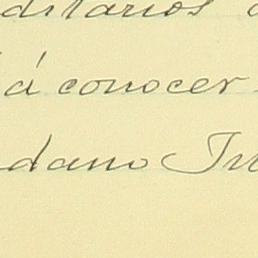 ditarios
á conocer
dano